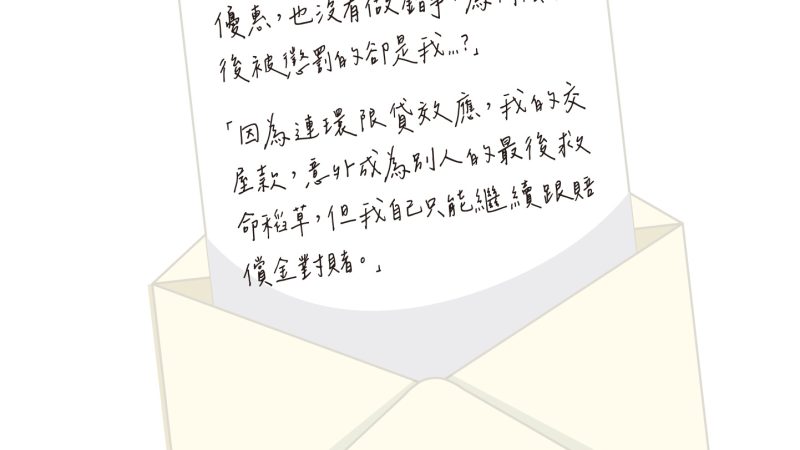 優惠，也沒有做錯事，為何
後被懲罰的卻是我...?」
「因為連環限貸效應，我的交
屋款，意外成為別人的最後救
命稻草，但我自己只能繼續跟賠
償金對賭。」